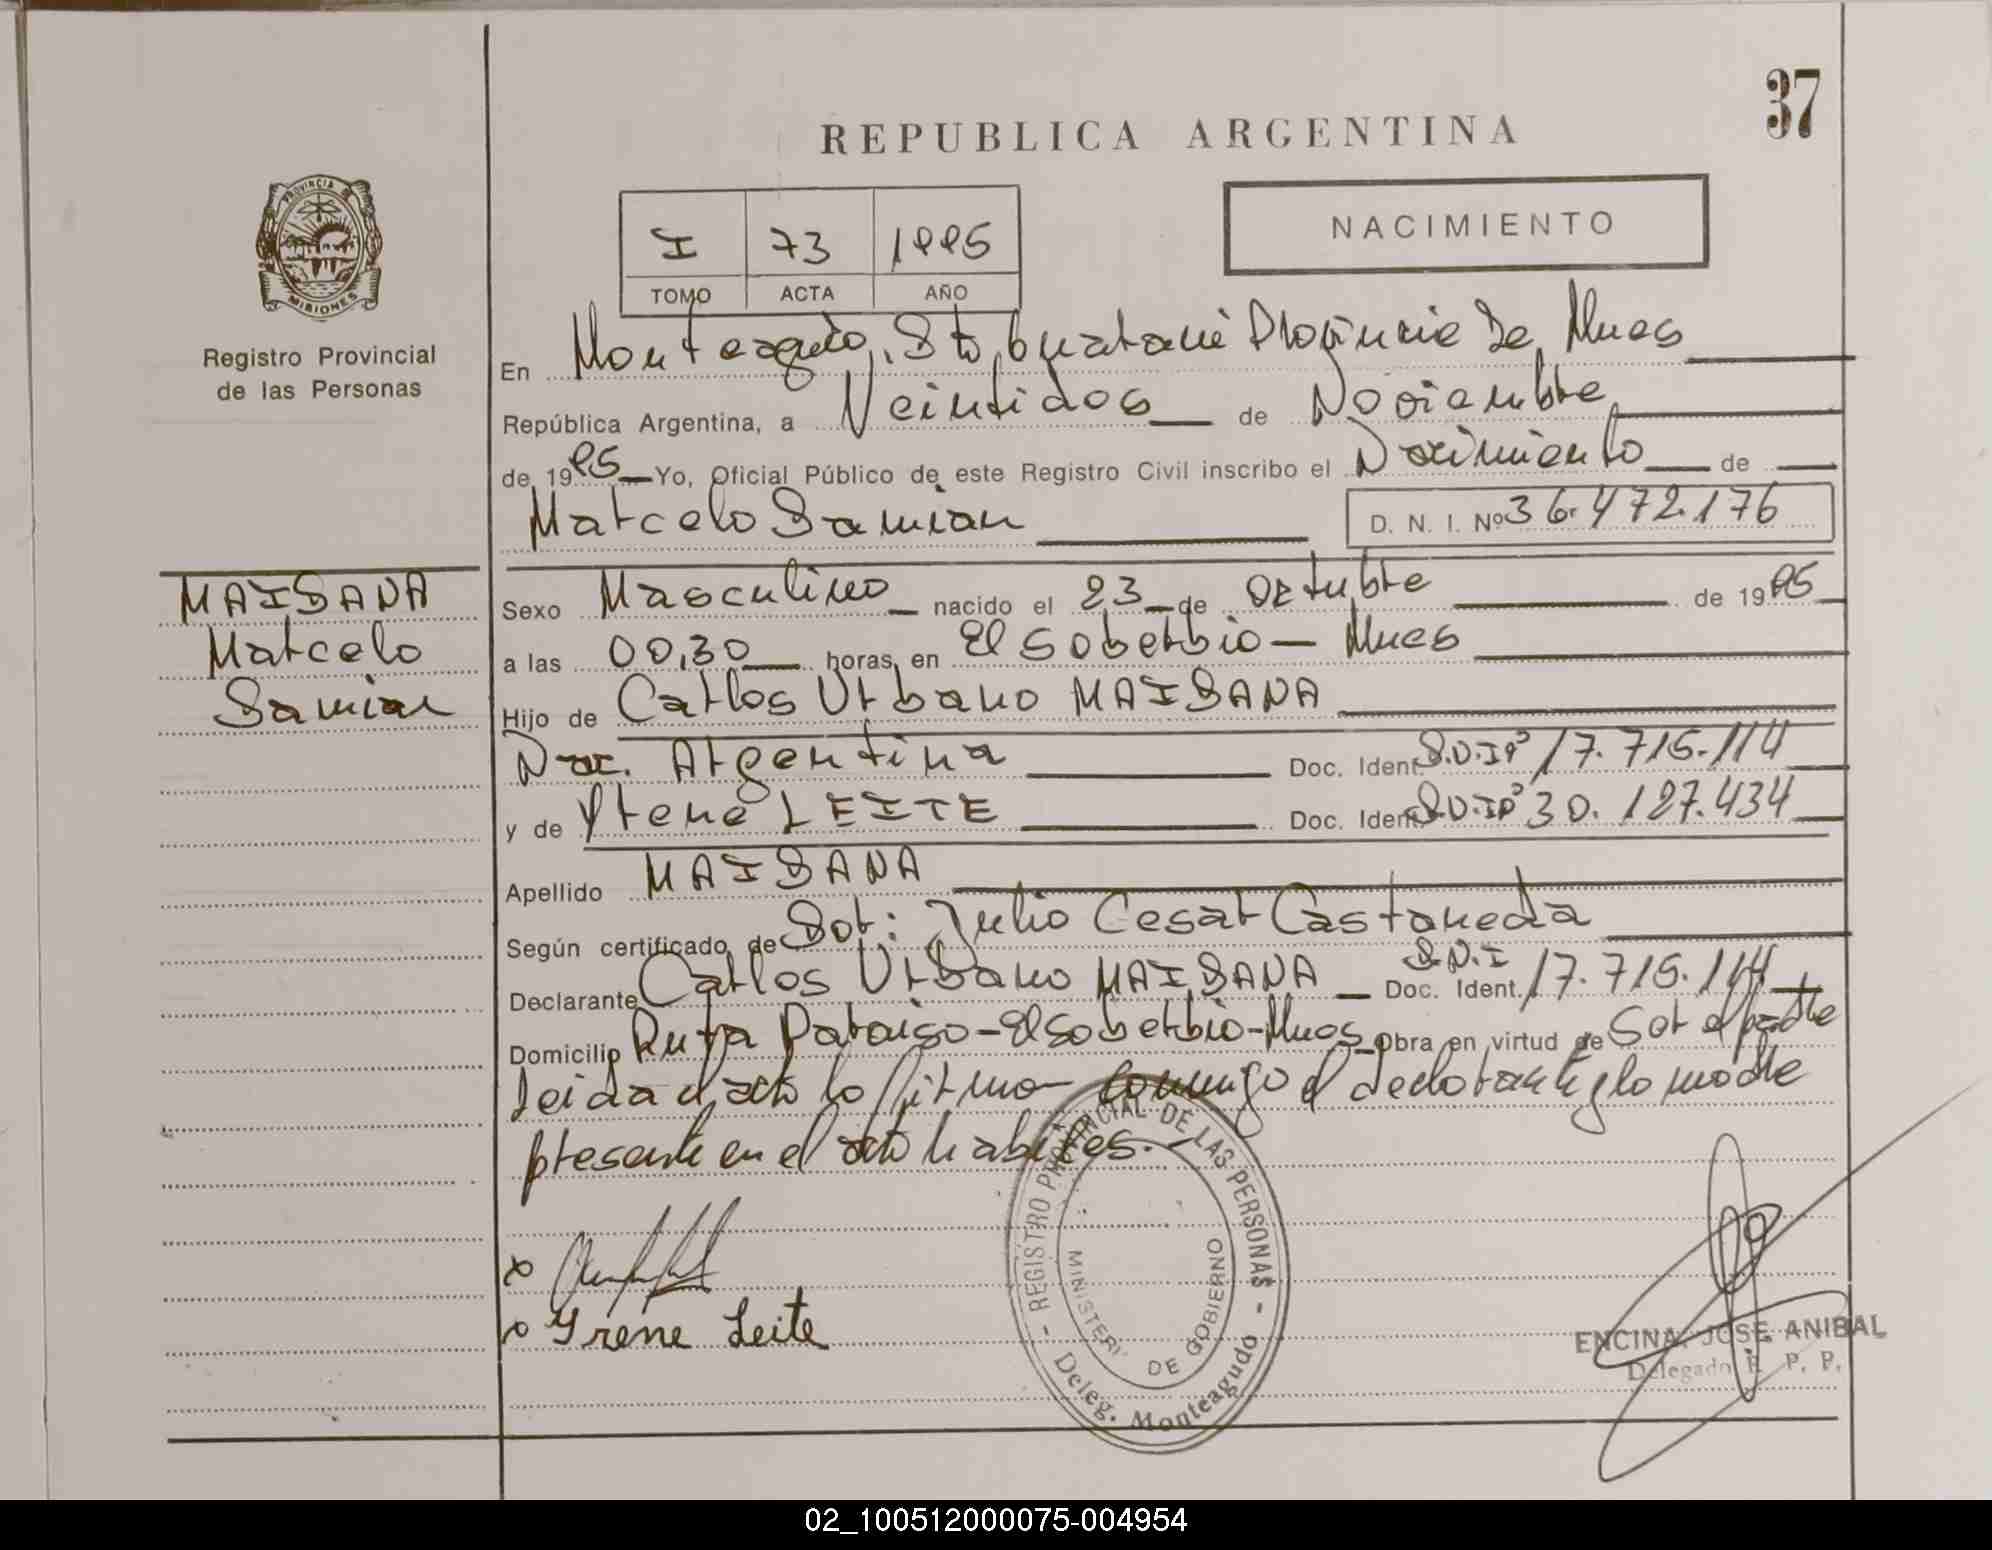 37
REPUBLICA ARGENTINA
PROVINCIA DE
MISIONES
Registro Provincial
de las Personas
I 73 1995
TOMO ACTA AÑO
NACIMIENTO
En Monteagudo, Dto. Guaraní Provincia de Mnes
República Argentina, a Veintidos de Noviembre
de 1995 Yo, Oficial Público de este Registro Civil inscribo el Nacimiento de
Marcelo Damian D. N. I. Nº 36.472.176
MAIDANA
Marcelo
Damian
Sexo Masculino nacido el 23 de Octubre de 1995
a las 00,30 horas, en El Soberbio - Mnes
Hijo de Carlos Urbano MAIDANA
Nac. Argentina Doc. Ident. D.N.I Nº 17.715.114
y de Irene LEITE Doc. Ident. D.N.I Nº 30.127.434
Apellido MAIDANA
Según certificado de Dor: Julio Cesar Castaneda
Declarante Carlos Urbano MAIDANA Doc. Ident. D.N.I 17.715.114
Domicilio Ruta Paraiso - El Soberbio - Mnes Obra en virtud de Ser el padre
leida el acta lo firman conmigo el declarante y la madre
presente en el acto habiles.
x
x Irene Leite
REGISTRO PROVINCIAL DE LAS PERSONAS
MINISTERIO DE GOBIERNO
Deleg. Monteagudo
ENCINA JOSE ANIBAL
Delegado R. P. P.
02_100512000075-004954